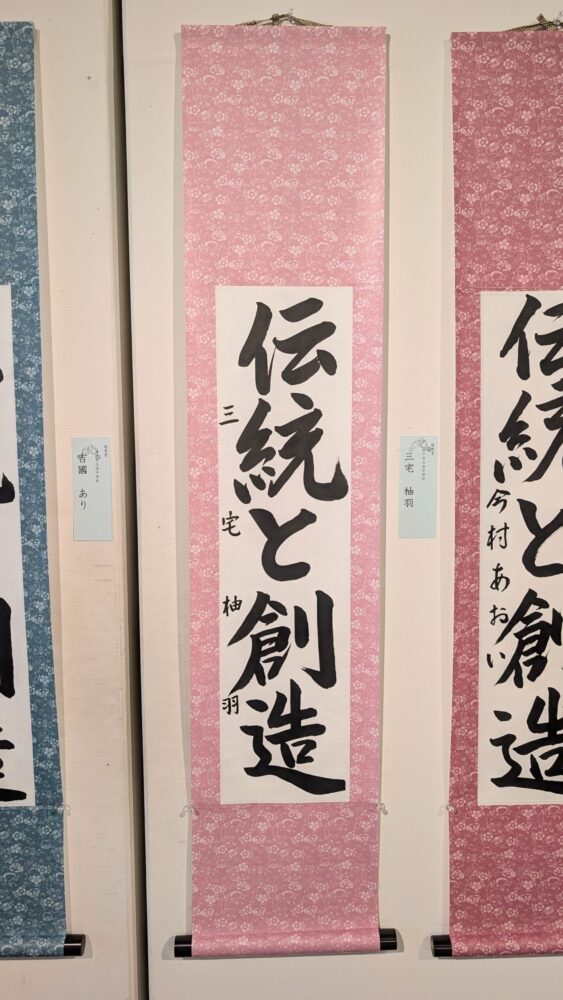 伝統と創造
三宅柚羽
三宅 柚羽
伝統と創造
今村あおい
吉國 あり